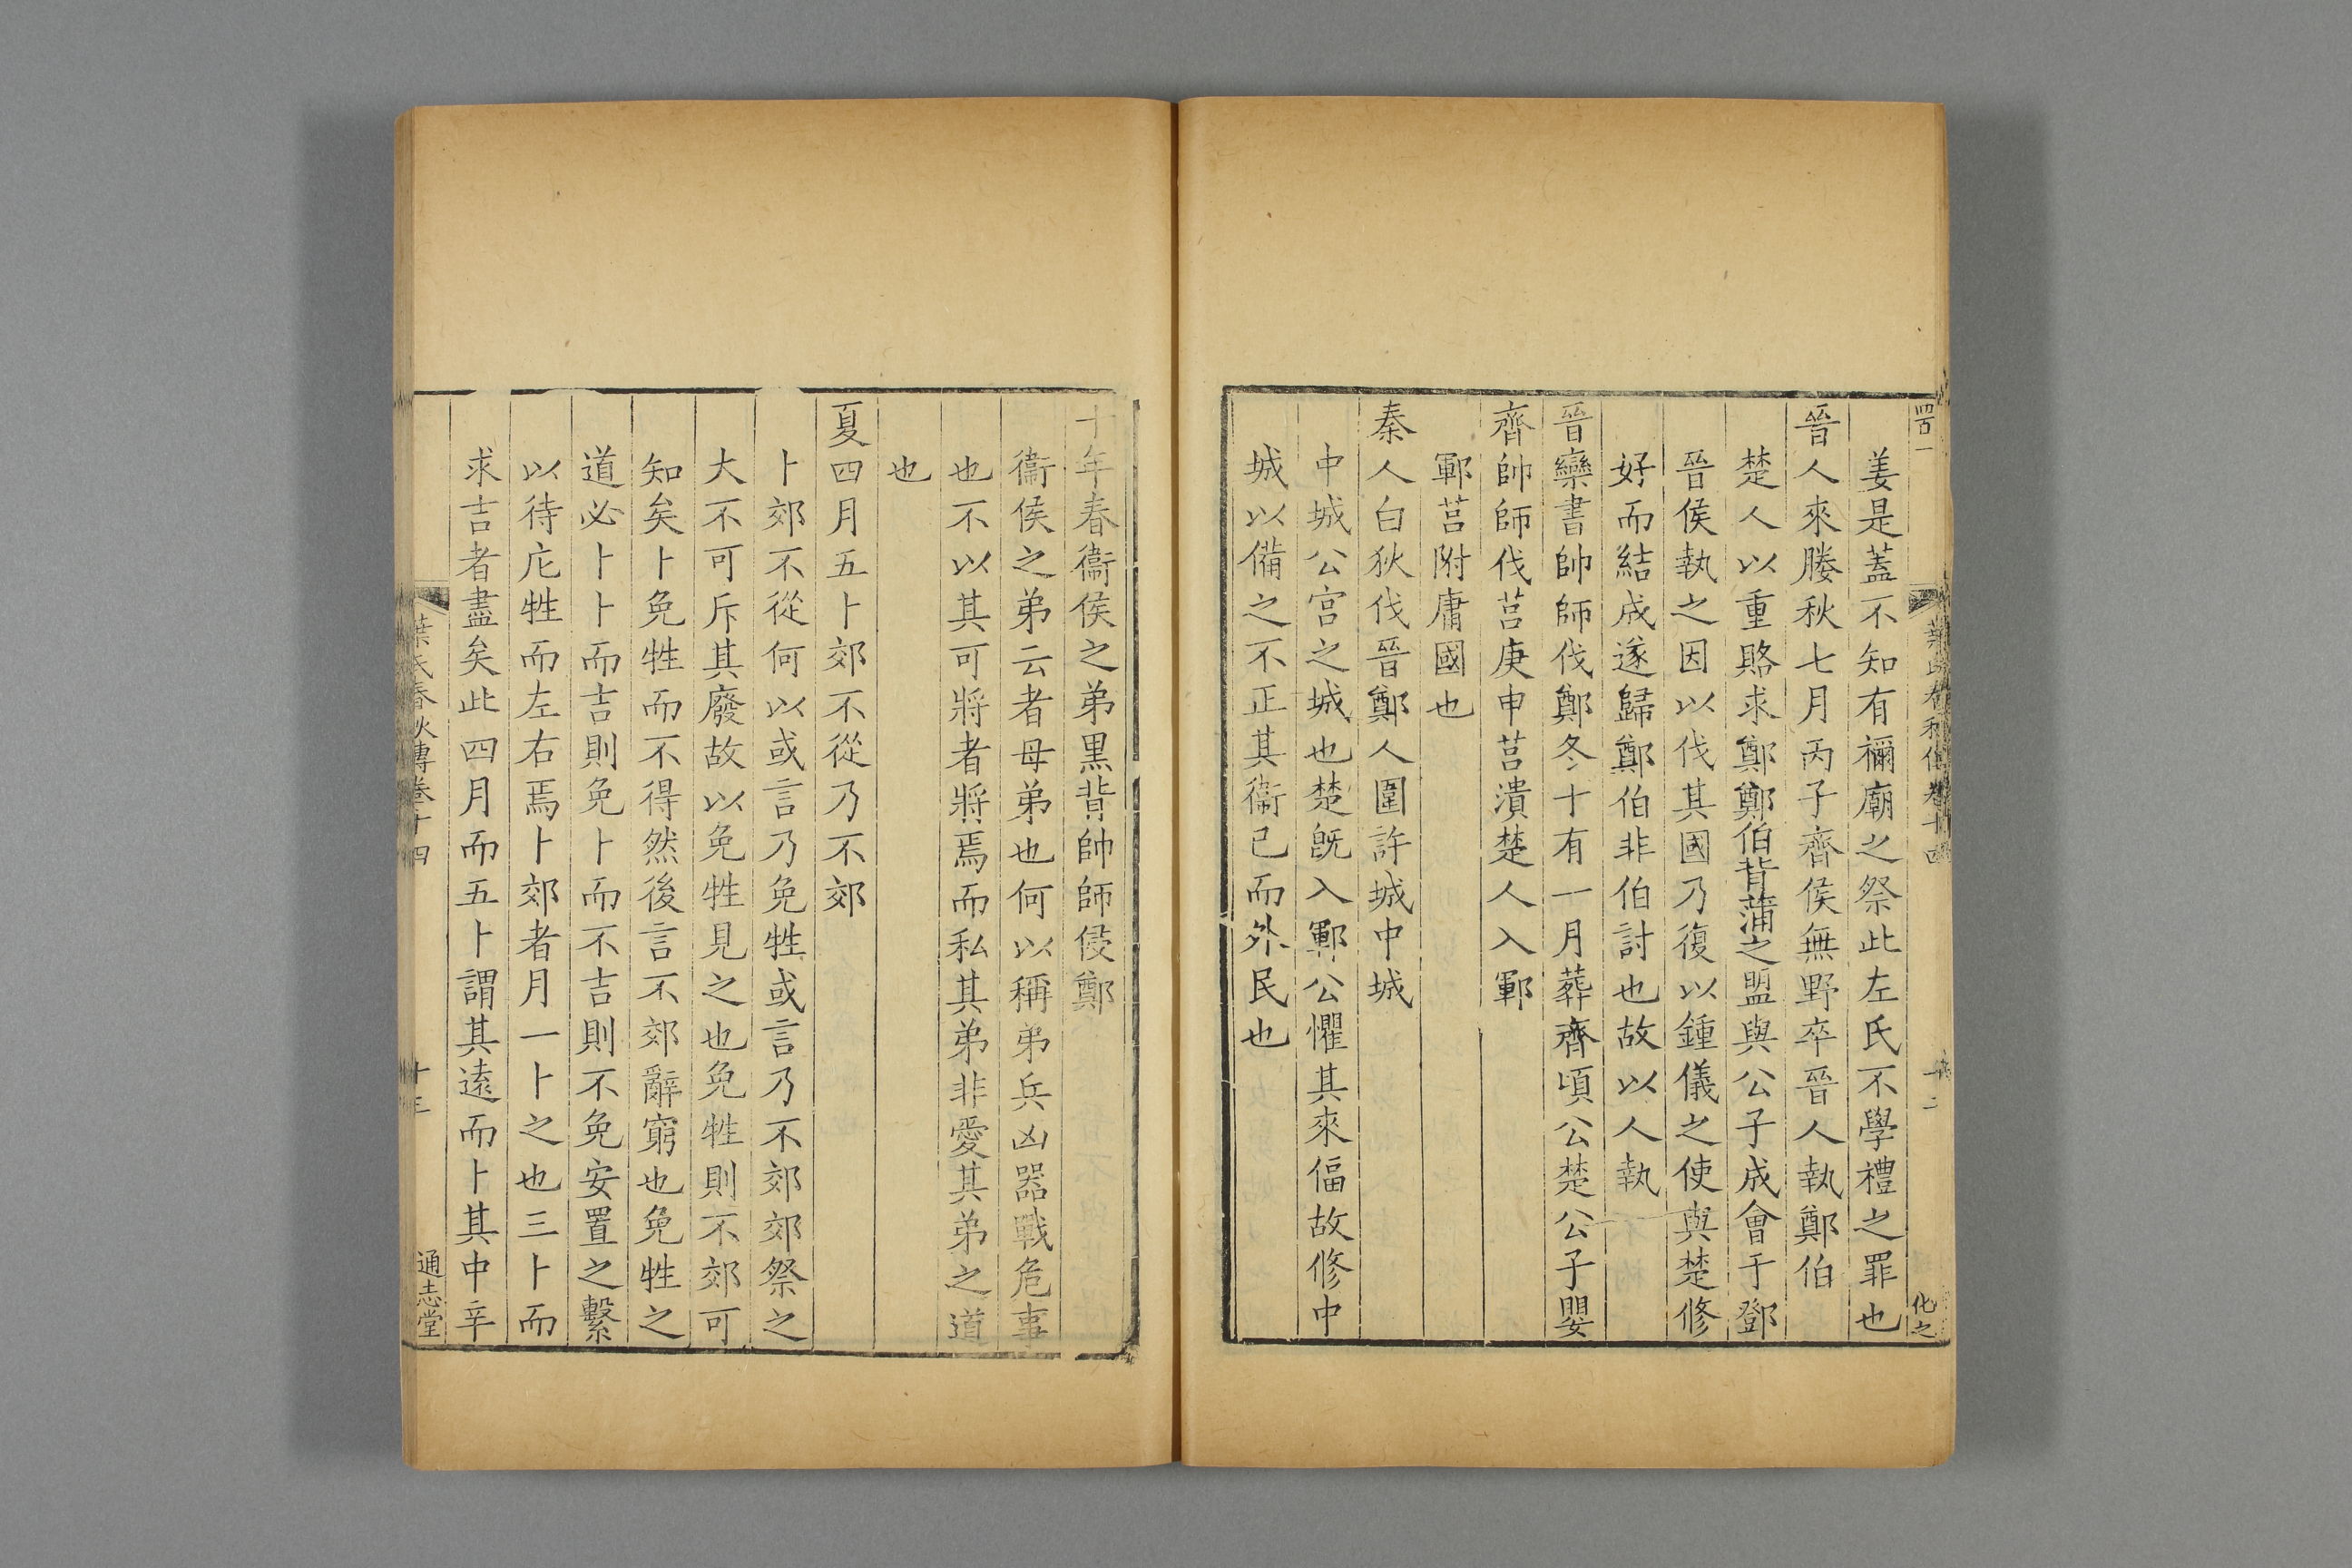 姜是蓋不知有禰廟之祭此左氏不學禮之罪也
晉人來媵秋七月丙子齊侯無野卒晉人執鄭伯
楚人以重賂求鄭鄭伯背蒲之盟與公子成會于鄧
晉侯執之因以伐其國乃復以鍾儀之使與楚修
好而結成遂歸鄭伯非伯討也故以人執
晉欒書帥師伐鄭冬十有一月葬齊頃公楚公子嬰
齊帥師伐莒庚申莒潰楚人入鄆
鄆莒附庸國也
秦人白狄伐晉鄭人圍許城中城
中城公宫之城也楚旣入鄆公懼其來偪故修中
城以備之不正其衞已而外民也
十年春衞侯之弟黒背帥師侵鄭
衞侯之弟云者母弟也何以稱弟兵凶器戰危事
也不以其可將者將焉而私其弟非愛其弟之道
也
夏四月五卜郊不從乃不郊
卜郊不從何以或言乃免牲或言乃不郊郊祭之
大不可斥其廢故以免牲見之也免牲則不郊可
知矣卜免牲而不得然後言不郊辭窮也免牲之
道必卜卜而吉則免卜而不吉則不免安置之繫
以待庀牲而左右焉卜郊者月一卜之也三卜而
求吉者盡矣此四月而五卜謂其遠而卜其中辛
葉氏春秋傳卷十四
十三
通志堂